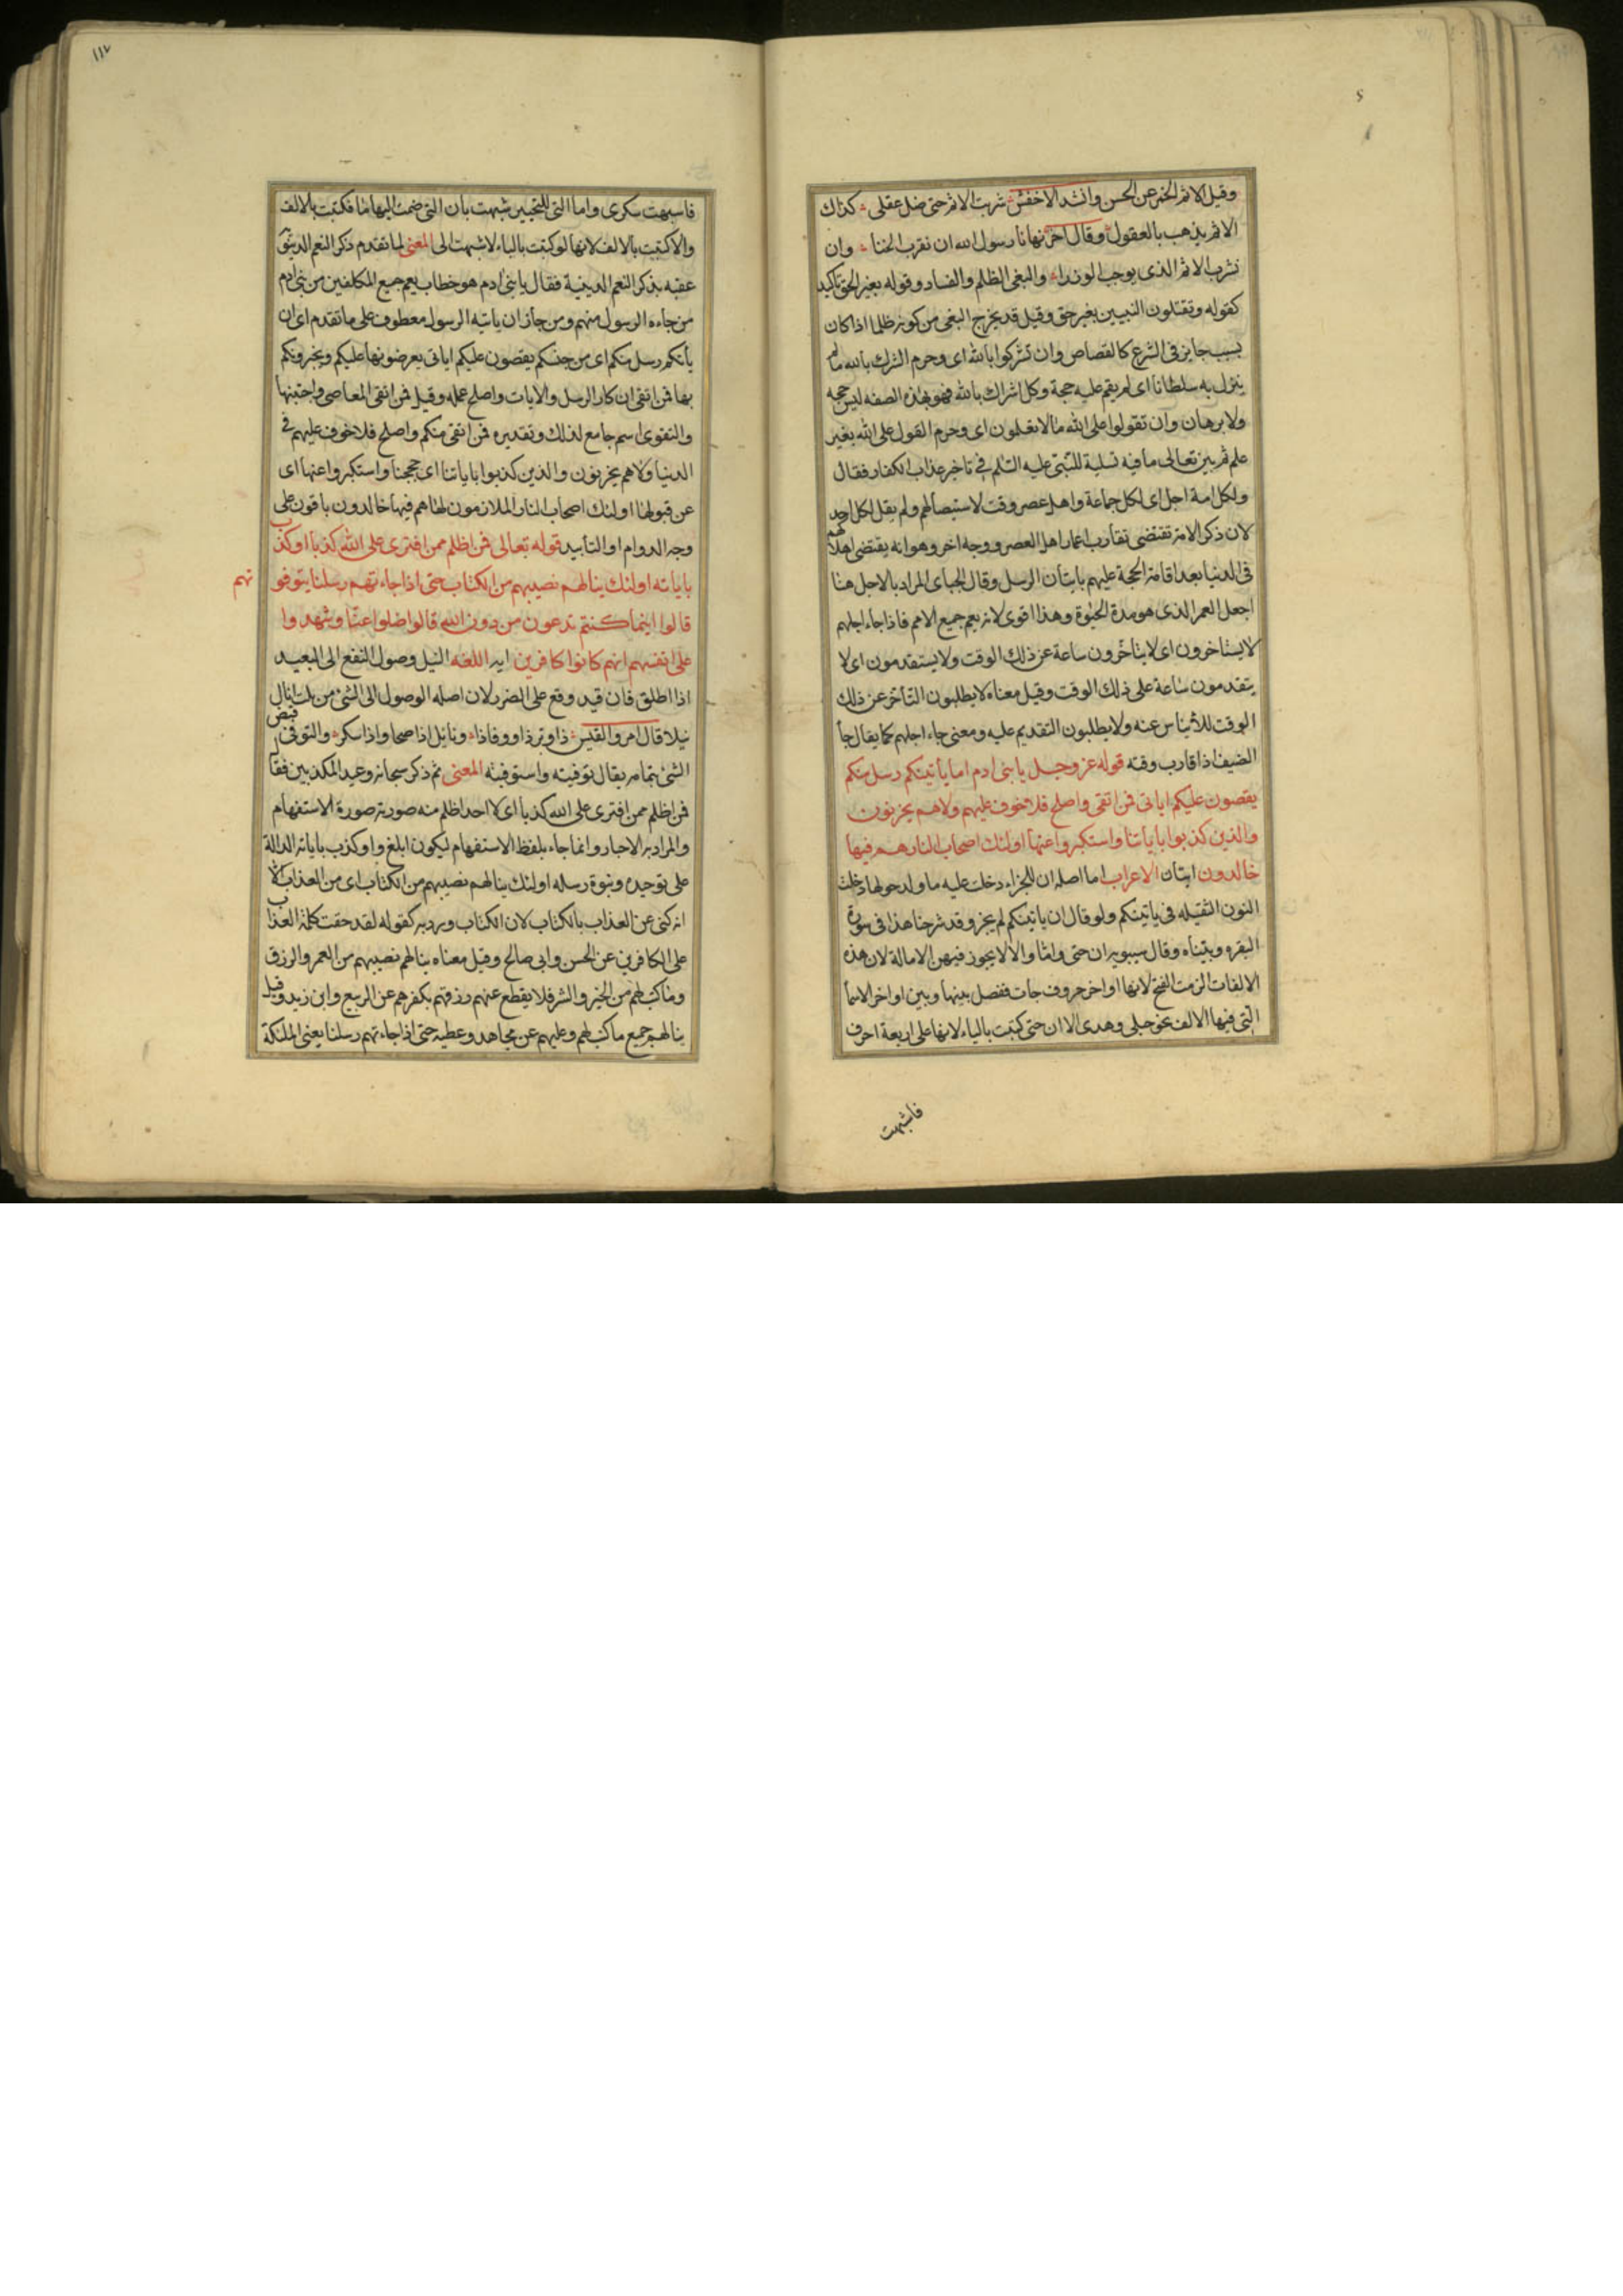 وقيل الاثم الخمر عن الحسن وانشد الاخفش شربت الاثم حتى ضل عقلى كذاك
الاثم يذهب بالعقول وقال اخر نهانا رسول الله ان نقرب الخنا وان
نشرب الاثم الذى يوجب الوزرا والبغى الظلم والفساد وقوله بغير الحق تاكيد
كقوله ويقتلون النبيين بغير حق وقيل قد يخرج البغى من كونه ظلما اذا كان
بسبب جايز فى الشرع كالقصاص وان تشركوا بالله اى وحرم الشرك بالله ما لم
ينزل به سلطانا اى لم يقم عليه حجة وكل اشراك بالله فهو بهذه الصفه ليس حجه
ولا برهان وان تقولوا على الله ما لا تعلمون اى وحرم القول على الله بغير
علم ثم بين تعالى ما فيه تسلية للنبى عليه السلم فى تاخير عذاب الكفار فقال
ولكل امة اجل اى لكل جماعة واهل عصر وقت لاستيصالهم ولم يقل لكل احد
لان ذكر الامة تقتضى تقارب اعمار اهل العصر ووجه اخر وهو انه يقتضى اهلاكهم
فى الدنيا بعد اقامة الحجة عليهم باتيان الرسل وقال الجباى المراد بالاجل هنا
اجل العمر الذى هو مدة الحيوة وهذا اقوى لانه يعم جميع الامم فاذا جاء اجلهم
لا يستاخرون اى لا يتاخرون ساعة عن ذلك الوقت ولا يستقدمون اى لا
يتقدمون ساعة على ذلك الوقت وقيل معناه لا يطلبون التأخر عن ذلك
الوقت للأياس عنه ولا يطلبون التقديم عليه ومعنى جاء اجلهم كما يقال جأ
الضيف اذا قارب وقته قوله عز وجل يا بنى ادم اما يأتينكم رسل منكم
يقصون عليكم اياتى فمن اتقى واصلح فلا خوف عليهم ولا هم يحزنون
والذين كذبوا بأياتنا واستكبروا عنها اولئك اصحاب النار هم فيها
خالدون ايتان الاعراب اما اصله ان للجزاء دخلت عليه ما ولدخولها دخلت
النون الثقيله فى ياتينكم ولو قال ان ياتينكم لم يجز وقد شرحنا هذا فى سورة
البقره وبيناه وقال سيبويه ان حتى واما والا لا يجوز فيهن الامالة لان هذه
الالفات الزمت الفتح لانها اواخر حروف جات ففصل بينها وبين اواخر الاسمأ
التى فيها الالف نحو حبلى وهدى الا ان حتى كتبت بالياء لانها على اربعة احرف
فاشبهت
١١٧
فاشبهت سكرى واما التى للتخيير شبهت بان التى ضمت اليها ما فكتبت بالالف
والا كتبت بالالف لانها لو كتبت بالياء لاشبهت الى المعنى لما تقدم ذكر النعم الدنيوية
عقبه بذكر النعم الدينية فقال يا بنى ادم هو خطاب يعم جميع المكلفين من بنى ادم
من جاءه الرسول منهم ومن جاز ان ياتيه الرسول معطوف على ما تقدم اى ان
يأتكم رسل منكم اى من جنسكم يقصون عليكم اياتى يعرضونها عليكم ويخبرونكم
بها فمن اتقى انكار الرسل والايات واصلح عمله وقيل فمن اتقى المعاصى واجتنبها
والتقوى اسم جامع لذلك وتقديره فمن اتقى منكم واصلح فلا خوف عليهم فى
الدنيا ولا هم يحزنون والذين كذبوا باياتنا اى حججنا واستكبروا عنها اى
عن قبولها اولئك اصحاب النار الملازمون لها هم فيها خالدون باقون على
وجه الدوام او التأبيد قوله تعالى فمن اظلم ممن افترى على الله كذبا او كذب
باياته اولئك ينالهم نصيبهم من الكتاب حتى اذا جاءتهم رسلنا يتوفونهم
قالوا اينما كنتم تدعون من دون الله قالوا ضلوا عنا وشهدوا
على انفسهم انهم كانوا كافرين ايه اللغه النيل وصول النفع الى العبيد
اذا اطلق فان قيد وقع على الضرر لان اصله الوصول الى الشئ من نلت انال
نيلا قال امرو القيس ذا وبر ذا ووفا ذا ونايل اذا صحا واذا سكر والتوفى قبض
الشئ بتمامه يقال توفيته واستوفيته المعنى ثم ذكر سبحانه وعيد المكذبين فقال
فمن اظلم ممن افترى على الله كذبا اى لا احد اظلم منه صورته صورة الاستفهام
والمراد به الاخبار وانما جاء بلفظ الاستفهام ليكون ابلغ واو كذب باياته الدالة
على توحيده ونبوة رسله اولئك ينالهم نصيبهم من الكتاب اى من العذاب الا
انه كنى عن العذاب بالكتاب لان الكتاب ورد به كقوله لقد حقت كلمة العذاب
على الكافرين عن الحسن وابى صالح وقيل معناه ينالهم نصيبهم من العمر والرزق
وما كتب لهم من الخير والشر فلا يقطع عنهم رزقهم بكفرهم عن الربيع وابن زيد وقيل
ينالهم جميع ما كتب لهم وعليهم عن مجاهد وعطيه حتى اذا جاءتهم رسلنا يعنى الملئكة